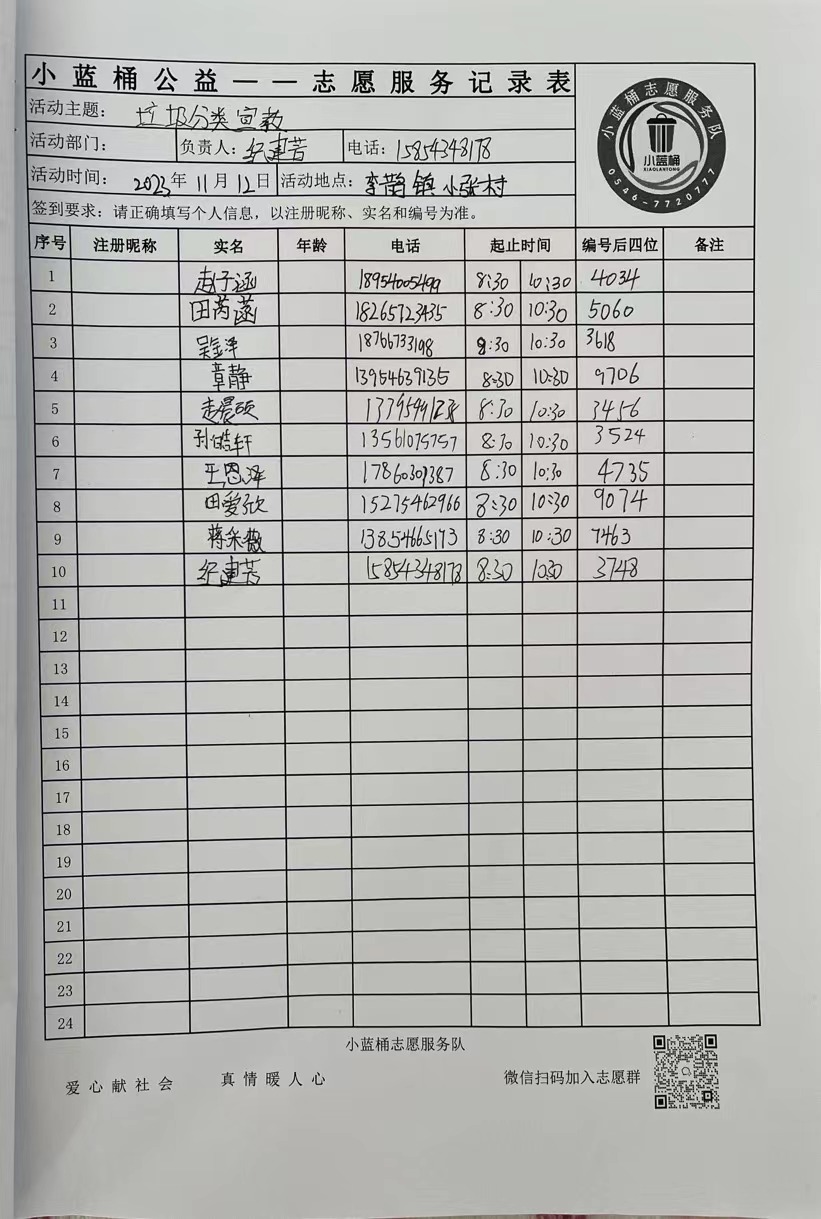 小蓝桶公益——志愿服务记录表
小蓝桶志愿服务队
小蓝桶
XIAOLANTONG
0546-7720777
活动主题: 垃圾分类宣教
活动部门: 负责人: 纪建芳 电话: 15854348178
活动时间: 2023年 11月 12日 活动地点: 李鹊镇小张村
签到要求: 请正确填写个人信息,以注册昵称、实名和编号为准。
序号 注册昵称 实名 年龄 电话 起止时间 编号后四位 备注
1 赵子涵 18954005499 8:30 10:30 4034
2 田芮菡 18265723435 8:30 10:30 5060
3 吴金泽 18766733198 8:30 10:30 3618
4 章静 13954639135 8:30 10:30 9706
5 走晨硕 8:30 10:30 3456
6 孙皓轩 13561075757 8:30 10:30 3524
7 王恩泽 17860309387 8:30 10:30 4735
8 田爱欣 15275462966 8:30 10:30 9074
9 蒋采薇 13854665173 8:30 10:30 7463
10 纪建芳 15854348178 8:30 10:30 3748
11
12
13
14
15
16
17
18
19
20
21
22
23
24
小蓝桶志愿服务队
爱心献社会 真情暖人心 微信扫码加入志愿群